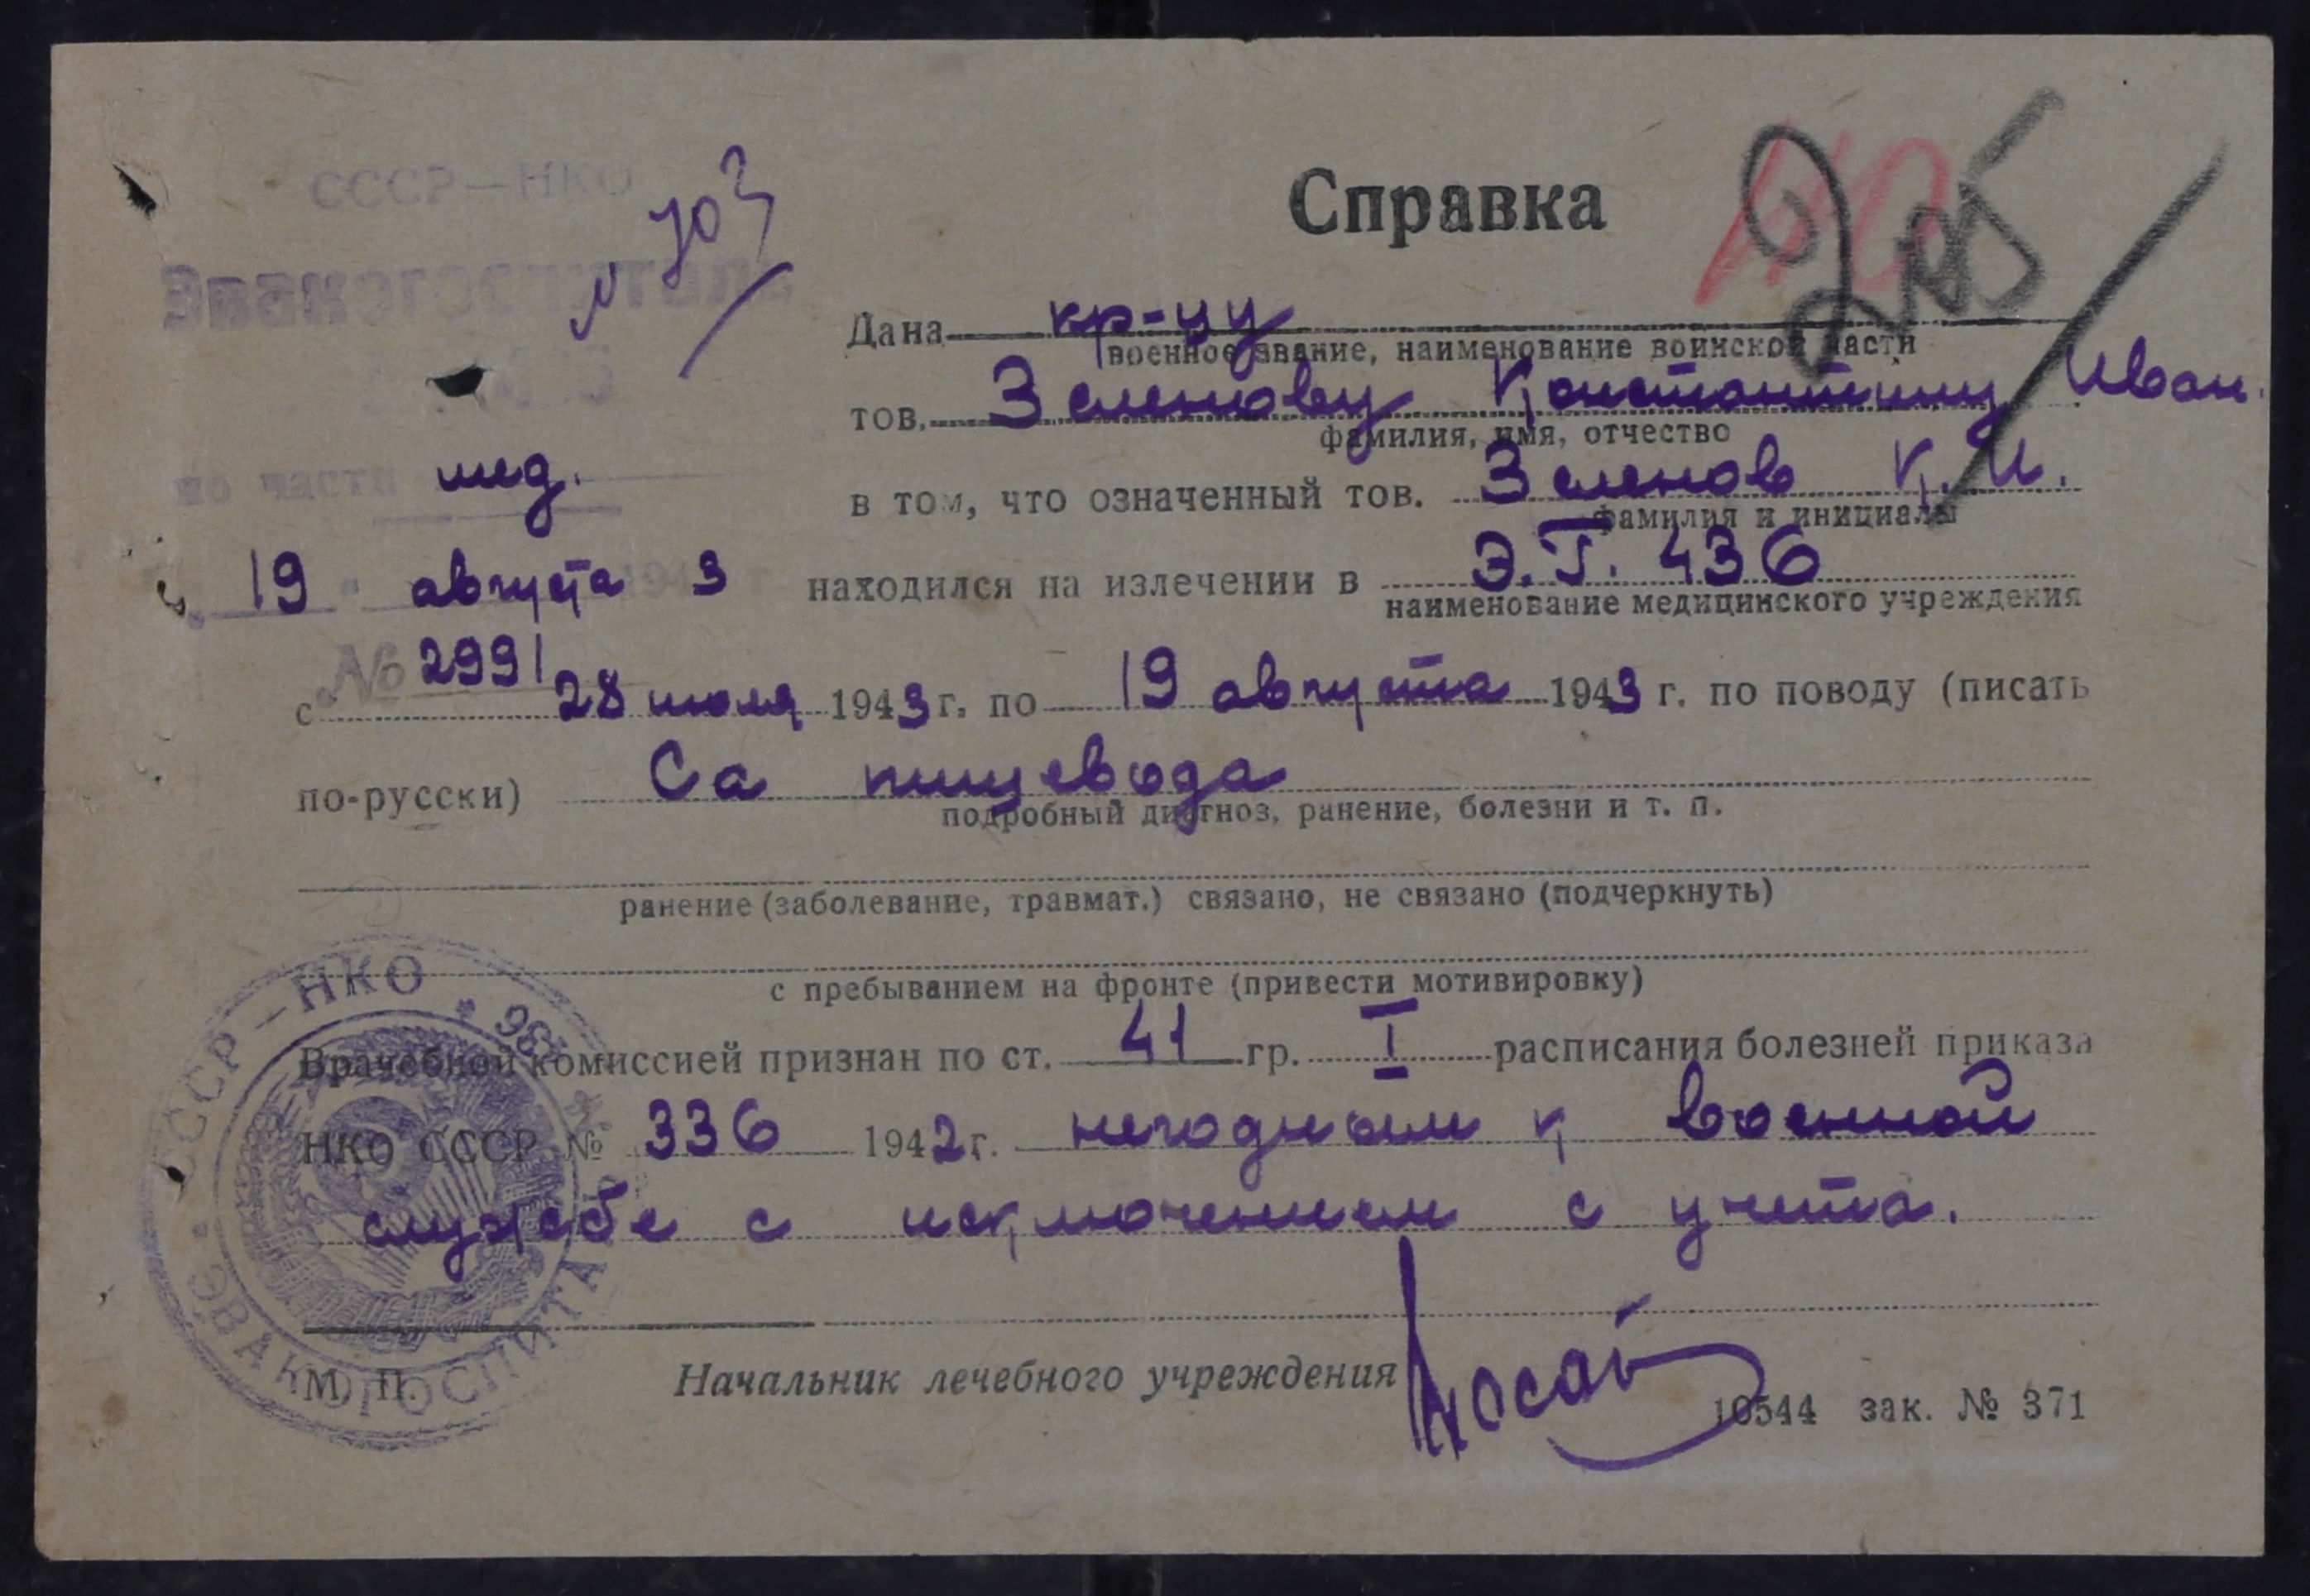 СССР—НКО
№ 703
Эвакогоспиталь
Справка
205
Дана кр-цу
военное звание, наименование воинской части
тов. Зеленову Константину Иван.
фамилия, имя, отчество
по части мед.
в том, что означенный тов. Зеленов К. И.
фамилия и инициалы
19 августа 3
находился на излечении в Э.Г. 436
наименование медицинского учреждения
№ 2991
с 28 июля 1943 г. по 19 августа 1943 г. по поводу (писать
по-русски) Са пищевода
подробный диагноз, ранение, болезни и т. п.
ранение (заболевание, травмат.) связано, не связано (подчеркнуть)
с пребыванием на фронте (привести мотивировку)
Врачебной комиссией признан по ст. 41 гр. I расписания болезней приказа
НКО СССР № 336 1942 г. негодным к военной
службе с исключением с учета.
СССР—НКО
ЭВАКОГОСПИТА
М. П.
Начальник лечебного учреждения
10544 зак. № 371